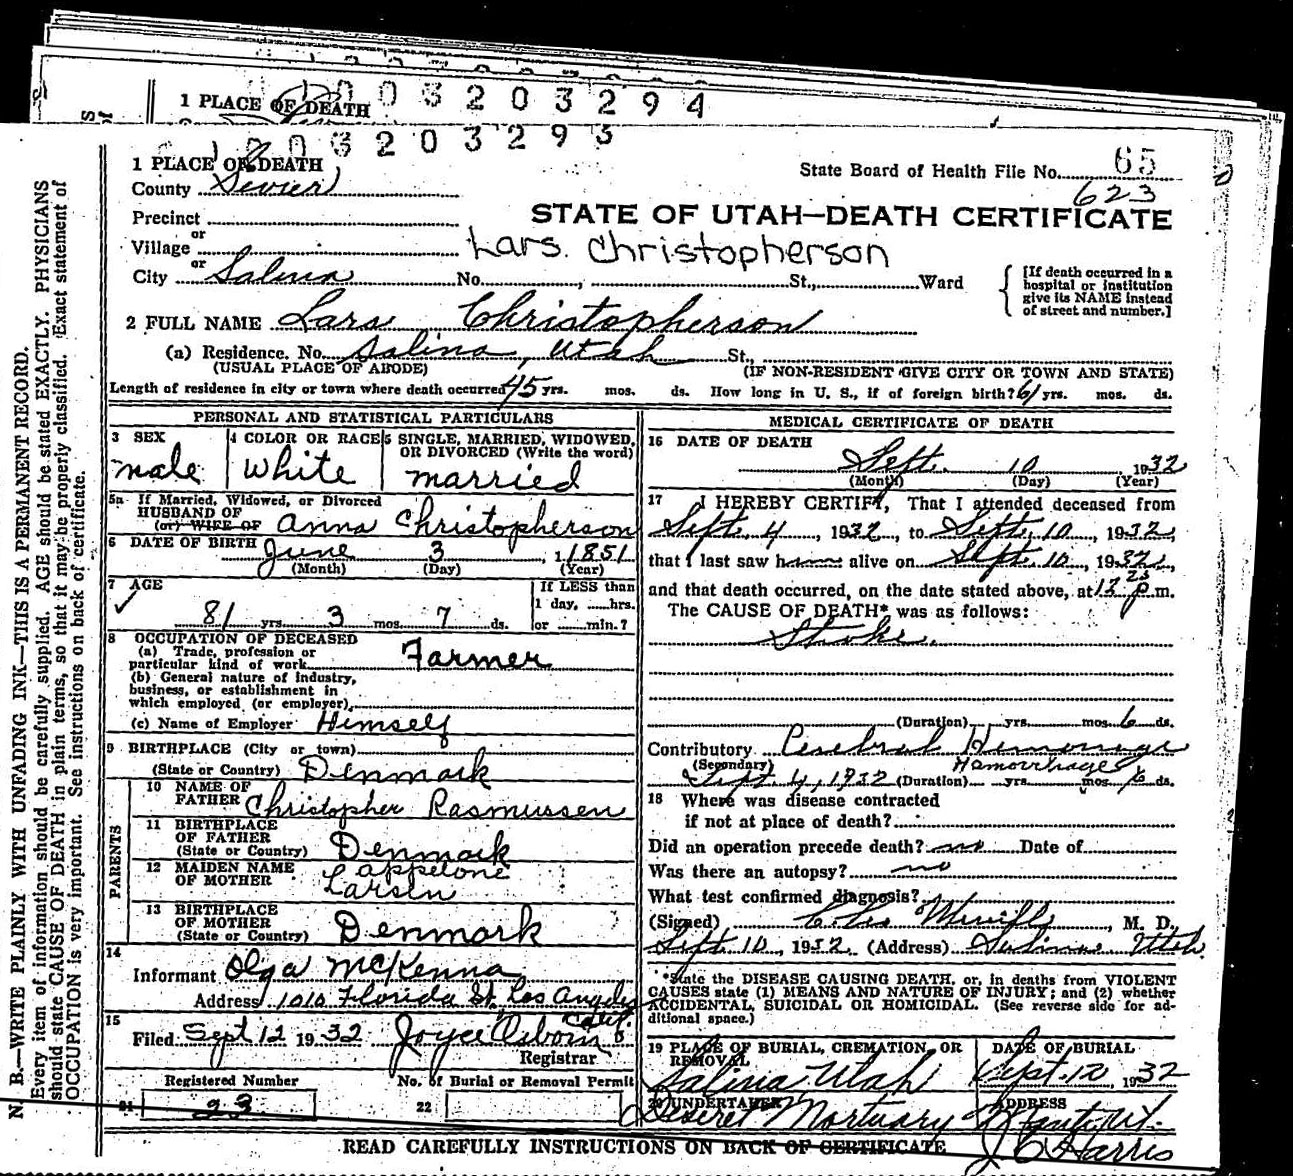 1 PLACE OF DEATH
0 0 3 2 0 3 2 9 4
0 0 3 2 0 3 2 9 3
1 PLACE OF DEATH
State Board of Health File No. 65
623
County Sevier
Precinct
STATE OF UTAH—DEATH CERTIFICATE
or
Village
Lars. Christopherson
or
City Salina No. , St., Ward
[If death occurred in a hospital or institution give its NAME instead of street and number.]
2 FULL NAME Lars Christopherson
(a) Residence. No. Salina, Utah St.,
(USUAL PLACE OF ABODE) (IF NON-RESIDENT GIVE CITY OR TOWN AND STATE)
Length of residence in city or town where death occurred 45 yrs. mos. ds. How long in U. S., if of foreign birth? 61 yrs. mos. ds.
PERSONAL AND STATISTICAL PARTICULARS
3 SEX
male
4 COLOR OR RACE
White
5 SINGLE, MARRIED, WIDOWED, OR DIVORCED (Write the word)
married
5a If Married, Widowed, or Divorced
HUSBAND OF
(or) WIFE OF Anna Christopherson
6 DATE OF BIRTH June 3, 1851
(Month) (Day) (Year)
7 AGE
If LESS than
1 day, ......hrs.
81 yrs. 3 mos. 7 ds. or ......min.?
8 OCCUPATION OF DECEASED
(a) Trade, profession or
particular kind of work Farmer
(b) General nature of industry,
business, or establishment in
which employed (or employer)
(c) Name of Employer Himself
9 BIRTHPLACE (City or town)
(State or Country) Denmark
PARENTS
10 NAME OF
FATHER Christopher Rasmussen
11 BIRTHPLACE
OF FATHER
(State or Country) Denmark
12 MAIDEN NAME
OF MOTHER
Appelone
Larsen
13 BIRTHPLACE
OF MOTHER
(State or Country) Denmark
14
Informant Olga McKenna
Address 1010 Florida St. Los Angeles
Calif.
15
Filed Sept 12 1932 Joyce Osborn
Registrar
Registered Number
No. of Burial or Removal Permit
21 23
22
MEDICAL CERTIFICATE OF DEATH
16 DATE OF DEATH
Sept. 10, 1932
(Month) (Day) (Year)
17 I HEREBY CERTIFY, That I attended deceased from
Sept. 4, 1932, to Sept. 10, 1932,
that I last saw h alive on Sept. 10, 1932,
and that death occurred, on the date stated above, at p.m.
The CAUSE OF DEATH* was as follows:
Stroke.
(Duration) yrs. mos. 6 ds.
Contributory Cerebral
(Secondary) Hamorrhage
Sept. 4, 1932 (Duration) yrs. mos. 6 ds.
18 Where was disease contracted
if not at place of death?
Did an operation precede death? no Date of
Was there an autopsy? no
What test confirmed diagnosis?
(Signed) , M. D.
Sept 10, 1932 (Address) Salina Utah
*State the DISEASE CAUSING DEATH, or, in deaths from VIOLENT
CAUSES state (1) MEANS AND NATURE OF INJURY; and (2) whether
ACCIDENTAL, SUICIDAL OR HOMICIDAL. (See reverse side for ad-
ditional space.)
19 PLACE OF BURIAL, CREMATION, OR
REMOVAL
Salina Utah
DATE OF BURIAL
Sept. 12, 1932
20 UNDERTAKER
Deseret Mortuary
ADDRESS
Manti, Ut.
J C Harris
READ CAREFULLY INSTRUCTIONS ON BACK OF CERTIFICATE
N. B.—WRITE PLAINLY WITH UNFADING INK—THIS IS A PERMANENT RECORD.
Every item of information should be carefully supplied. AGE should be stated EXACTLY. PHYSICIANS
should state CAUSE OF DEATH in plain terms, so that it may be properly classified. Exact statement of
OCCUPATION is very important. See instructions on back of certificate.